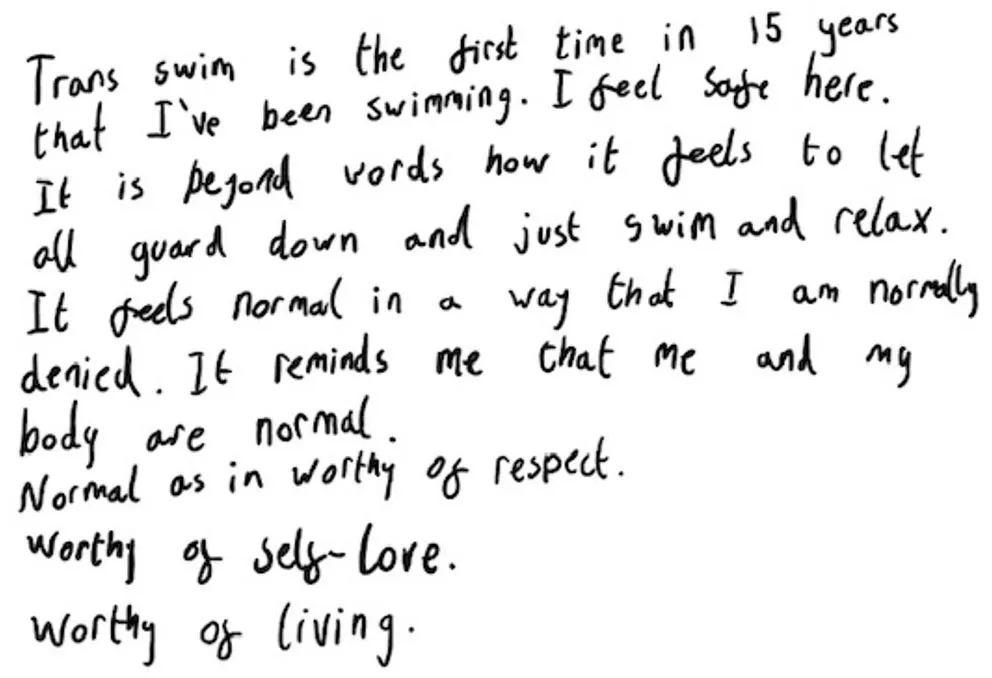 Trans swim is the first time in 15 years
that I've been swimming. I feel safe here.
It is beyond words how it feels to let
all guard down and just swim and relax.
It feels normal in a way that I am normally
denied. It reminds me that me and my
body are normal.
Normal as in worthy of respect.
Worthy of self-love.
Worthy of living.